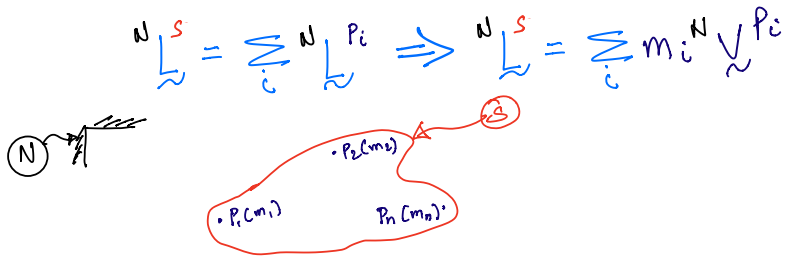 ᴺL̰ˢ = Σᵢ ᴺL̰ᴾⁱ ⇒ ᴺL̰ˢ = Σᵢ mᵢ ᴺV̰ᴾⁱ
S
N
·P₂(m₂)
·P₁(m₁) Pₙ(mₙ)·